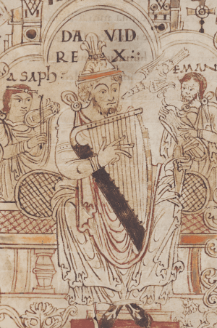 DA VID
RE X:
ASAPh
EMAN